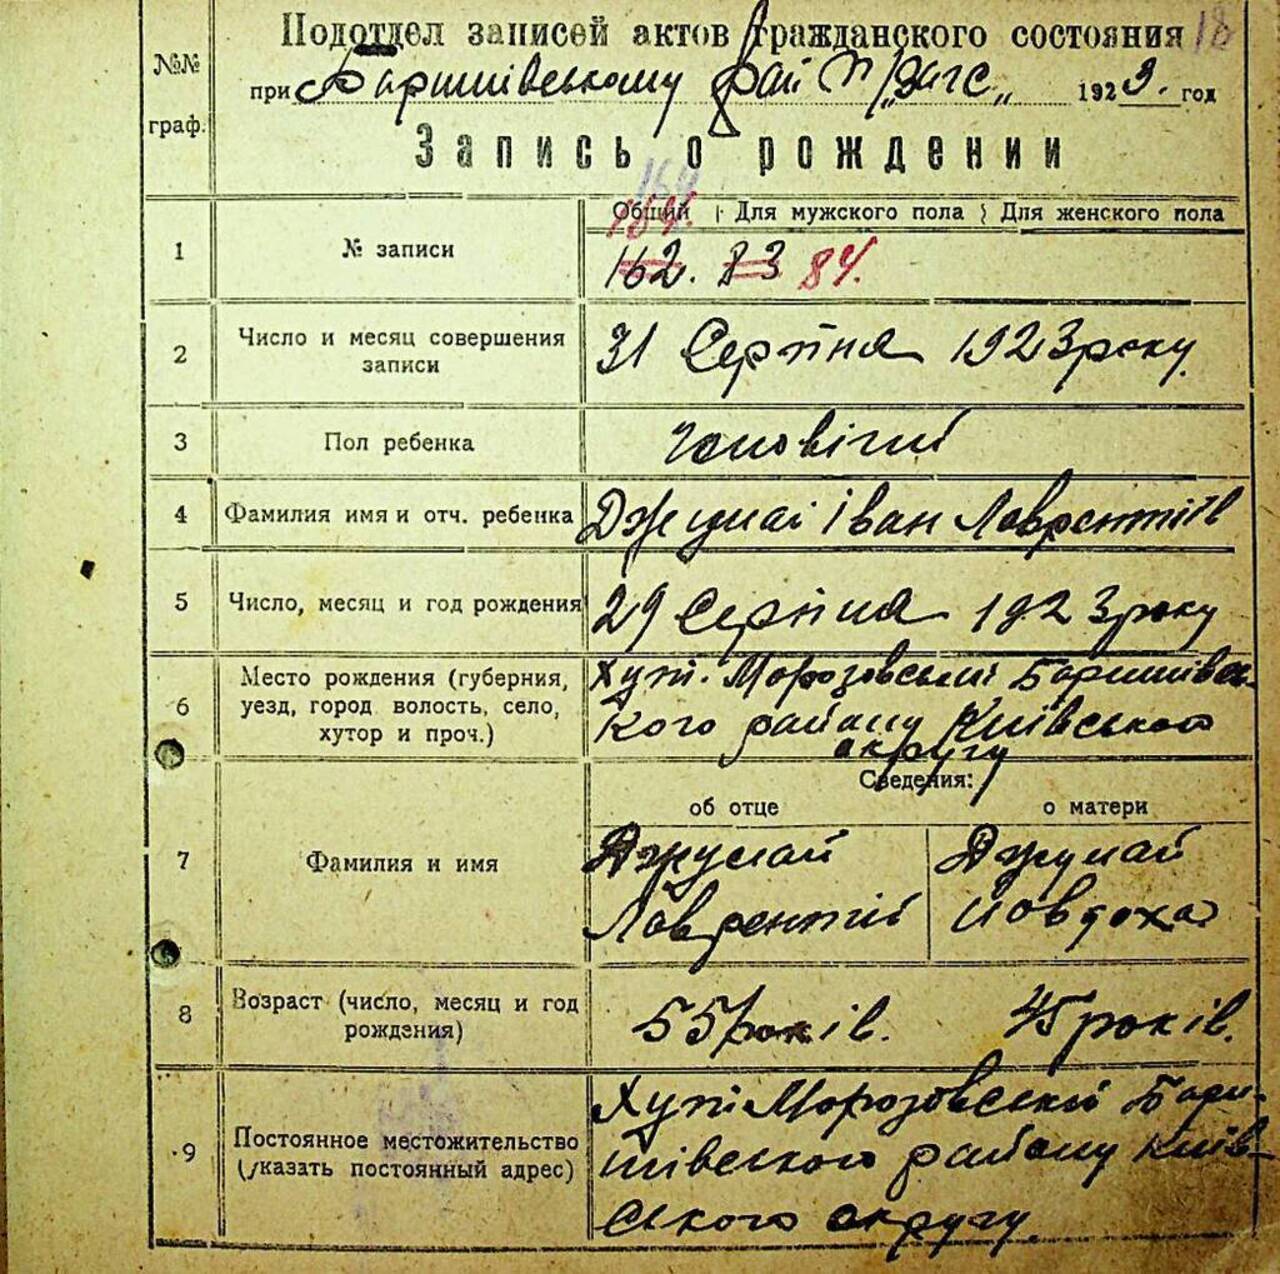 18
Подотдел записей актов гражданского состояния
№№ граф.
при Баришівському рай п/„загс„ 1923. год
Запись о рождении
164
Общий Для мужского пола Для женского пола
164.
1 № записи 162. 83 84.
2 Число и месяц совершения записи 31 Серпня 1923 року.
3 Пол ребенка Чоловічий
4 Фамилия имя и отч. ребенка Джумай Іван Лаврентіїв
5 Число, месяц и год рождения 29 Серпня 1923 року
6 Место рождения (губерния, уезд, город волость, село, хутор и проч.) Хут. Морозовський Баришівсь-
кого району Київського
округу
Сведения:
об отце о матери
7 Фамилия и имя Джумай Джумай
Лаврентій Йовдоха
8 Возраст (число, месяц и год рождения) 55 років. 45 років.
9 Постоянное местожительство (указать постоянный адрес) Хут Морозовский Бари-
шівського району Київ-
ського округу.